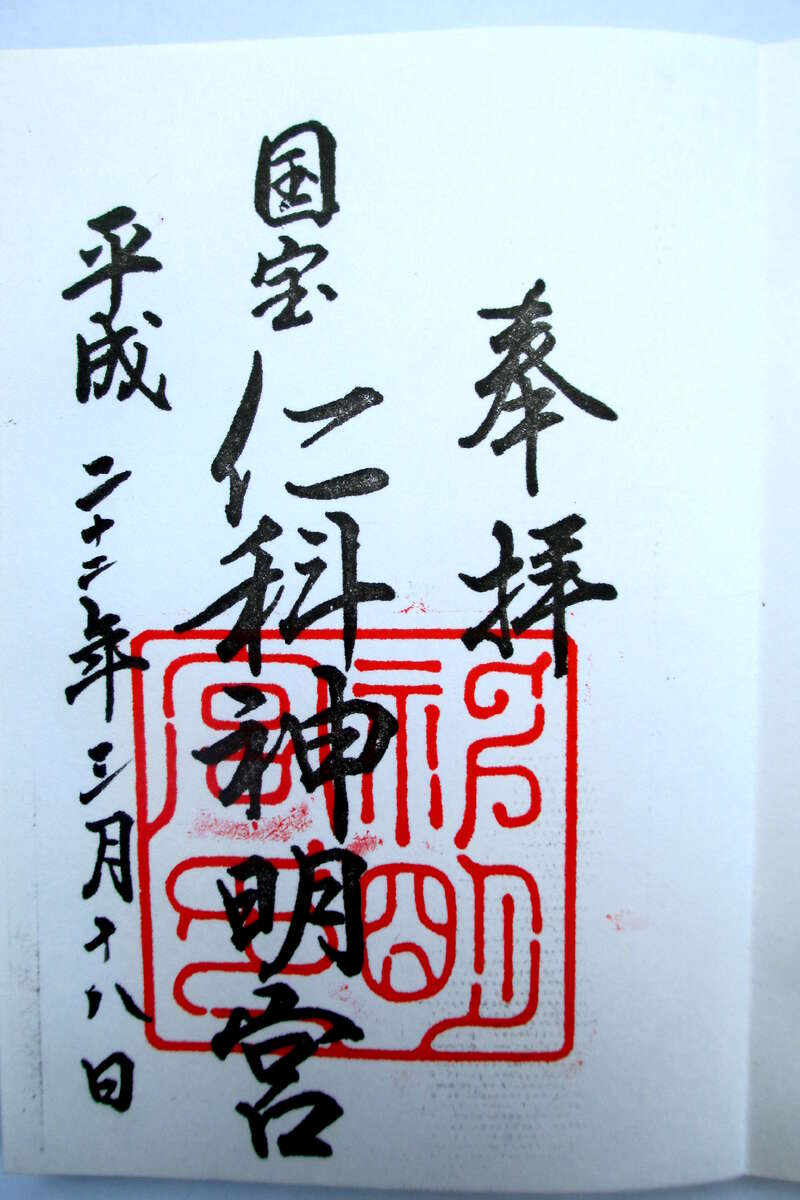 奉拝
国宝 仁科神明宮
平成二十二年三月十八日
神明宮印